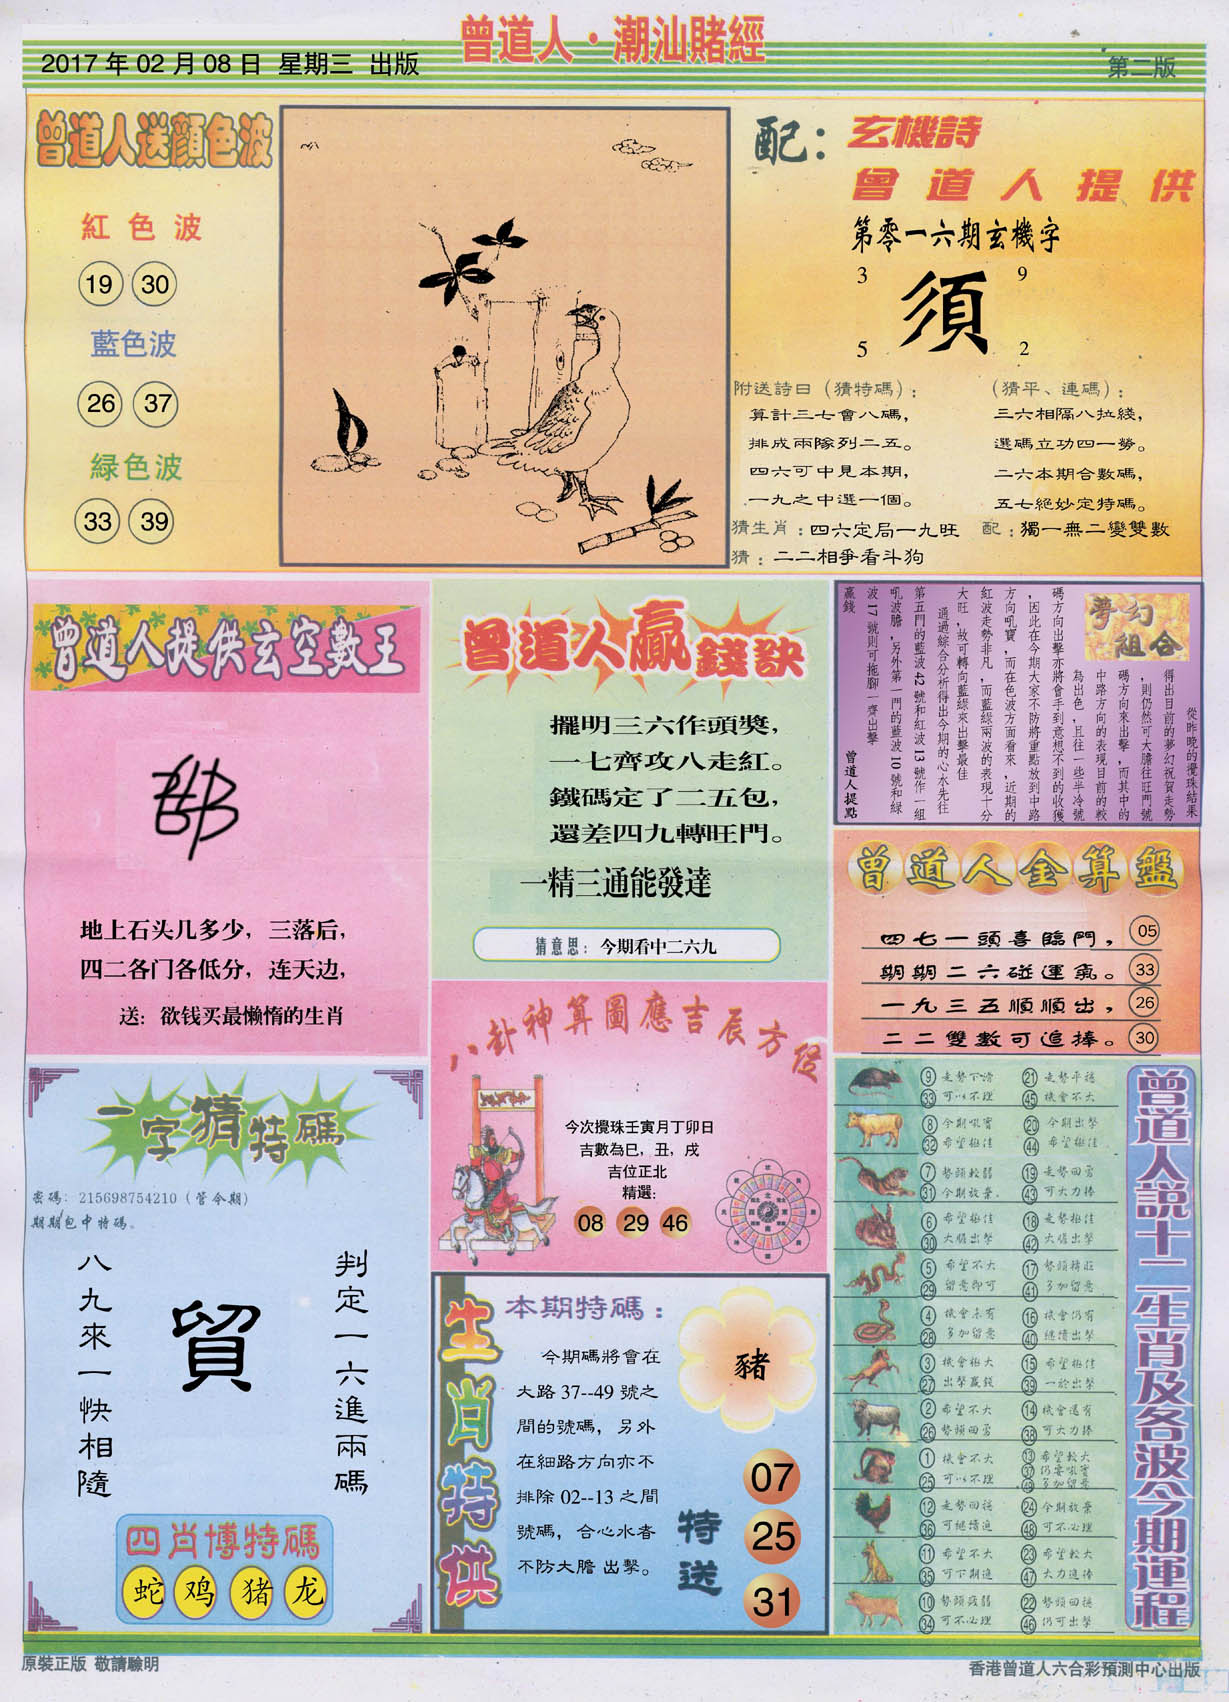 曾道人·潮汕賭經
2017 年 02 月 08 日 星期三 出版
第二版
曾道人送顔色波
紅色波
19 30
藍色波
26 37
緑色波
33 39
配：玄機詩
曾道人提供
第零一六期玄機字
3 9
須
5 2
附送詩日（猜特碼）：
算計三七會八碼，
排成兩隊列二五。
四六可中見本期，
一九之中選一個。
（猜平、連碼）：
三六相隔八拉綫，
選碼立功四一勞。
二六本期合數碼，
五七絕妙定特碼。
猜生肖：四六定局一九旺 配：獨一無二變雙數
猜：二二相爭看斗狗
曾道人提供玄空數王
地上石头几多少，三落后，
四二各门各低分，连天边，
送：欲钱买最懒惰的生肖
曾道人贏錢訣
擺明三六作頭獎，
一七齊攻八走紅。
鐵碼定了二五包，
還差四九轉旺門。
一精三通能發達
猜意思：今期看中二六九
夢幻組合
從昨晚的攪珠結果
得出目前的夢幻祝賀走勢
，則仍然可大膽往旺門號
碼方向來出擊，而其中的
中路方向的表現目前的較
為出色，且往一些半冷號
碼方向出擊亦將會手到意想不到的收獲
，因此在今期大家不防將重點放到中路
方向吼寶，而在色波方面看來，近期的
紅波走勢非凡，而藍緑兩波的表現十分
大旺，故可轉向藍緑來出擊最佳
通過綜合分析得出今期的心水先往
第五門的藍波 42 號和紅波 13 號作一組
吼波膽，另外第一門的藍波 10 號和緑
波 17 號則可拖腳一齊出擊
贏錢
曾道人提點
曾道人金算盤
四七一頭喜臨門， 05
期期二六碰運氣。 33
一九三五順順出， 26
二二雙數可追捧。 30
八卦神算圖應吉辰方位
今次攪珠壬寅月丁卯日
吉數為巳，丑，戌
吉位正北
精選：
08 29 46
一字猜特碼
密碼：215698754210（管令期）
期期包中特碼。
判定一六進兩碼
貿
八九來一快相隨
四肖博特碼
蛇 鸡 猪 龙
生肖特供
本期特碼：
今期碼將會在
大路 37--49 號之
間的號碼，另外
在細路方向亦不
排除 02--13 之間
號碼，合心水者
不防大膽 出擊。
豬
特送
07
25
31
曾道人説十二生肖及各波今期運程
⑨ 走勢下滑 ㉑ 走勢平穩
㉝ 可以不理 ㊺ 機會不大
⑧ 今期吼寶 ⑳ 今期出擊
㉜ 希望極佳 ㊹ 希望極佳
⑦ 勢頭較弱 ⑲ 走勢回勇
㉛ 今期放棄。 ㊸ 可大力捧
⑥ 希望極佳 ⑱ 走勢極佳
㉚ 大膽出擊 ㊷ 大膽出擊
⑤ 希望不大 ⑰ 勢頭轉旺
㉙ 留意即可 ㊶ 多加留意
④ 機會未有 ⑯ 機會仍有
㉘ 多加留意 ㊵ 繼續出擊
③ 機會極大 ⑮ 希望極佳
㉗ 出擊贏錢 ㊴ 一於出擊
② 希望不大 ⑭ 機會還有
㉖ 勢頭回勇 ㊳ 可大力捧
① 機會不大 ⑬ 希望較大
㉕ 可以不理 ㊲ 仍要吼寶
㊾ 多加留意
⑫ 走勢回穩 ㉔ 今期放棄
㊱ 可繼續追 ㊽ 可不必理
⑪ 希望不大 ㉓ 希望較大
㉟ 可下期追 ㊼ 大力追捧
⑩ 勢頭疲弱 ㉒ 勢頭回穩
㉞ 可不必理 ㊻ 仍可出擊
原裝正版 敬請驗明
香港曾道人六合彩預測中心出版